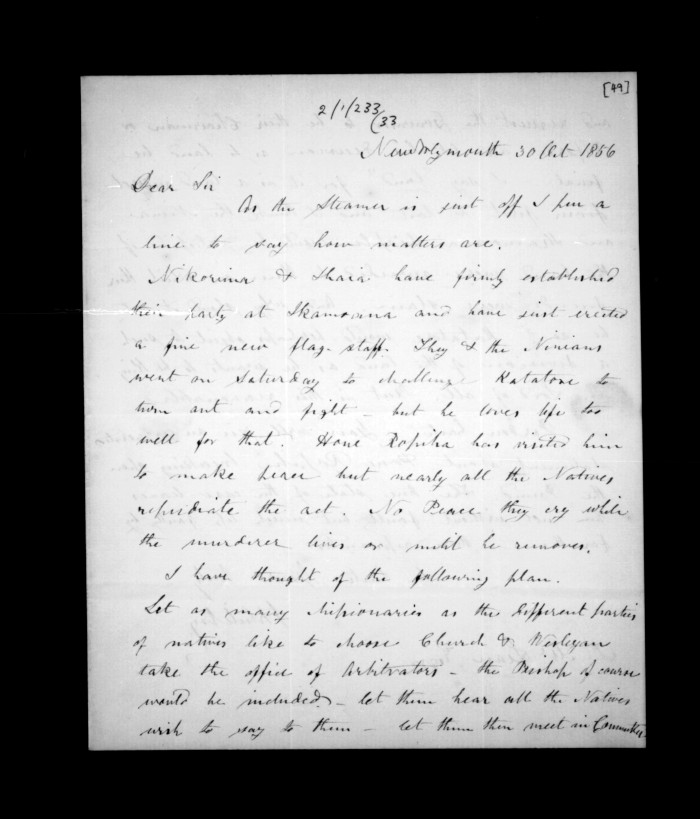 [49]
2/1/233
/33
New Plymouth 30 Oct 1856
Dear Sir
As the Steamer is just off I pen a
line to say how matters are.
Nikorima & Ihaia have firmly established
their party at Ikamoana and have just erected
a fine new flag-staff. They & the Ninians
went on Saturday to challenge Katatore to
turn out and fight - but he loves life too
well for that. Hone Ropiha has visited him
to make peace but nearly all the Natives
repudiate the act. No Peace they cry while
the murderer lives or until he removes.
I have thought of the following plan.
Let as many Missionaries as the different parties
of natives like to choose Church & Wesleyan
take the office of Arbitrators - the Bishop of course
would be included - let them hear all the Natives
wish to say to them - let them then meet in Committee